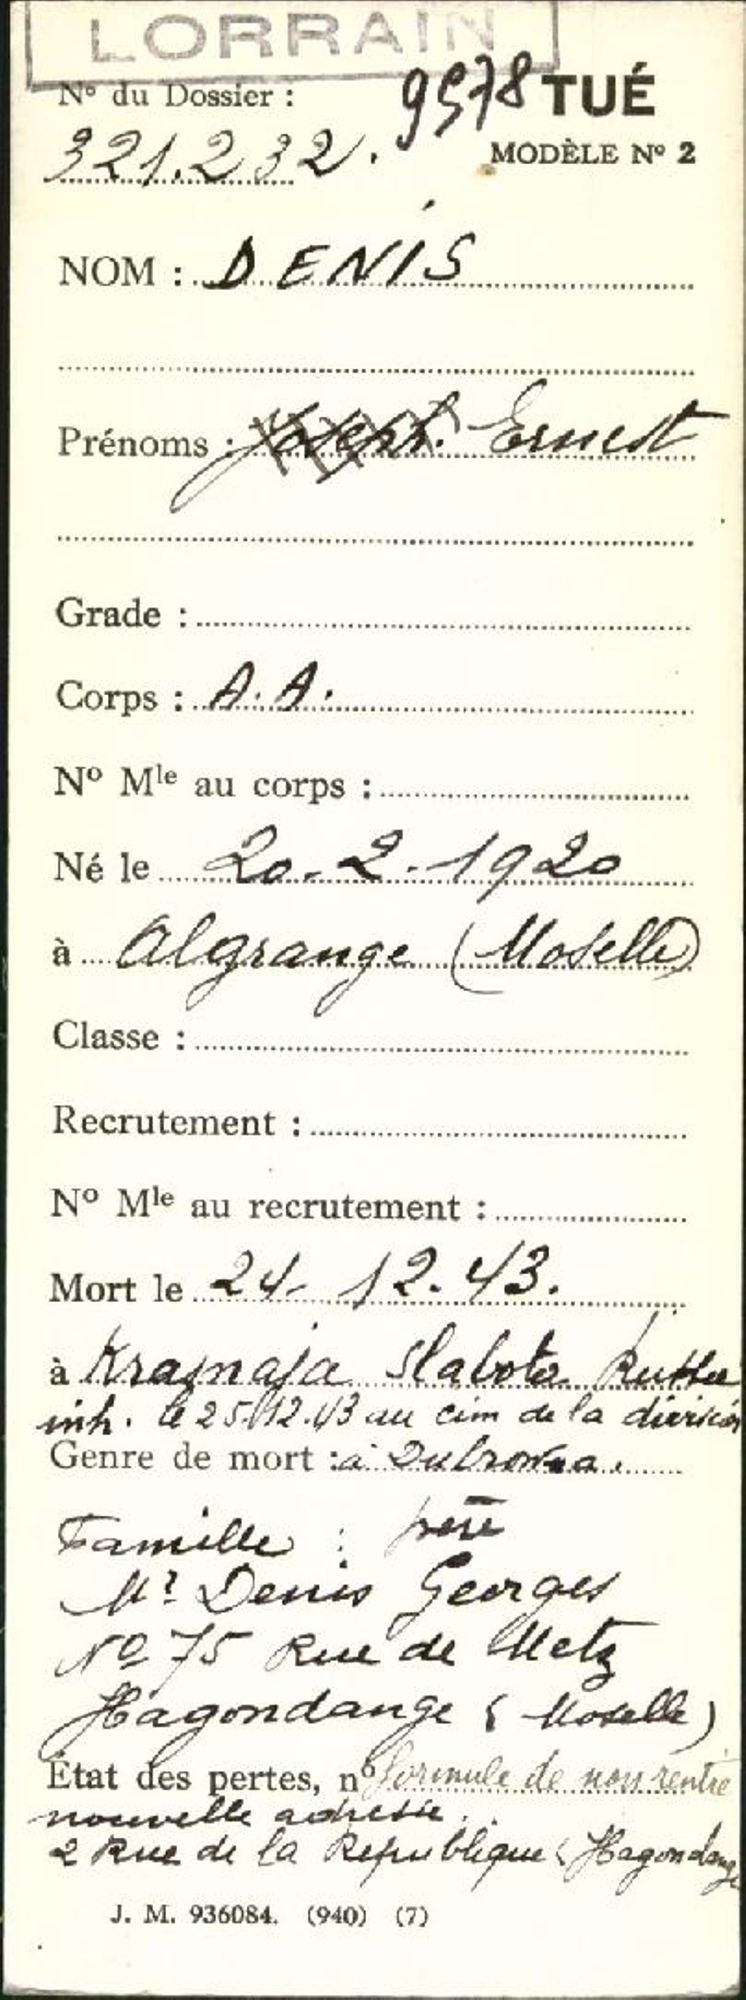 LORRAIN
N° du Dossier : 9578 TUÉ
321.232. MODÈLE N° 2
NOM : DENIS
Prénoms : Joseph. Ernest
Grade :
Corps : A.A.
N° Mle au corps :
Né le 20-2-1920
à Algrange (Moselle)
Classe :
Recrutement :
N° Mle au recrutement :
Mort le 24-12.43.
à Slabota
inh. le 25.12.43 au cim de la division
Genre de mort : à
Famille : frère
Mr Denis Georges
N° 75 Rue de Metz
Hagondange (Moselle)
État des pertes, n° formule de non rentré
nouvelle adresse.
2 Rue de la République (Hagondange
J. M. 936084. (940) (7)